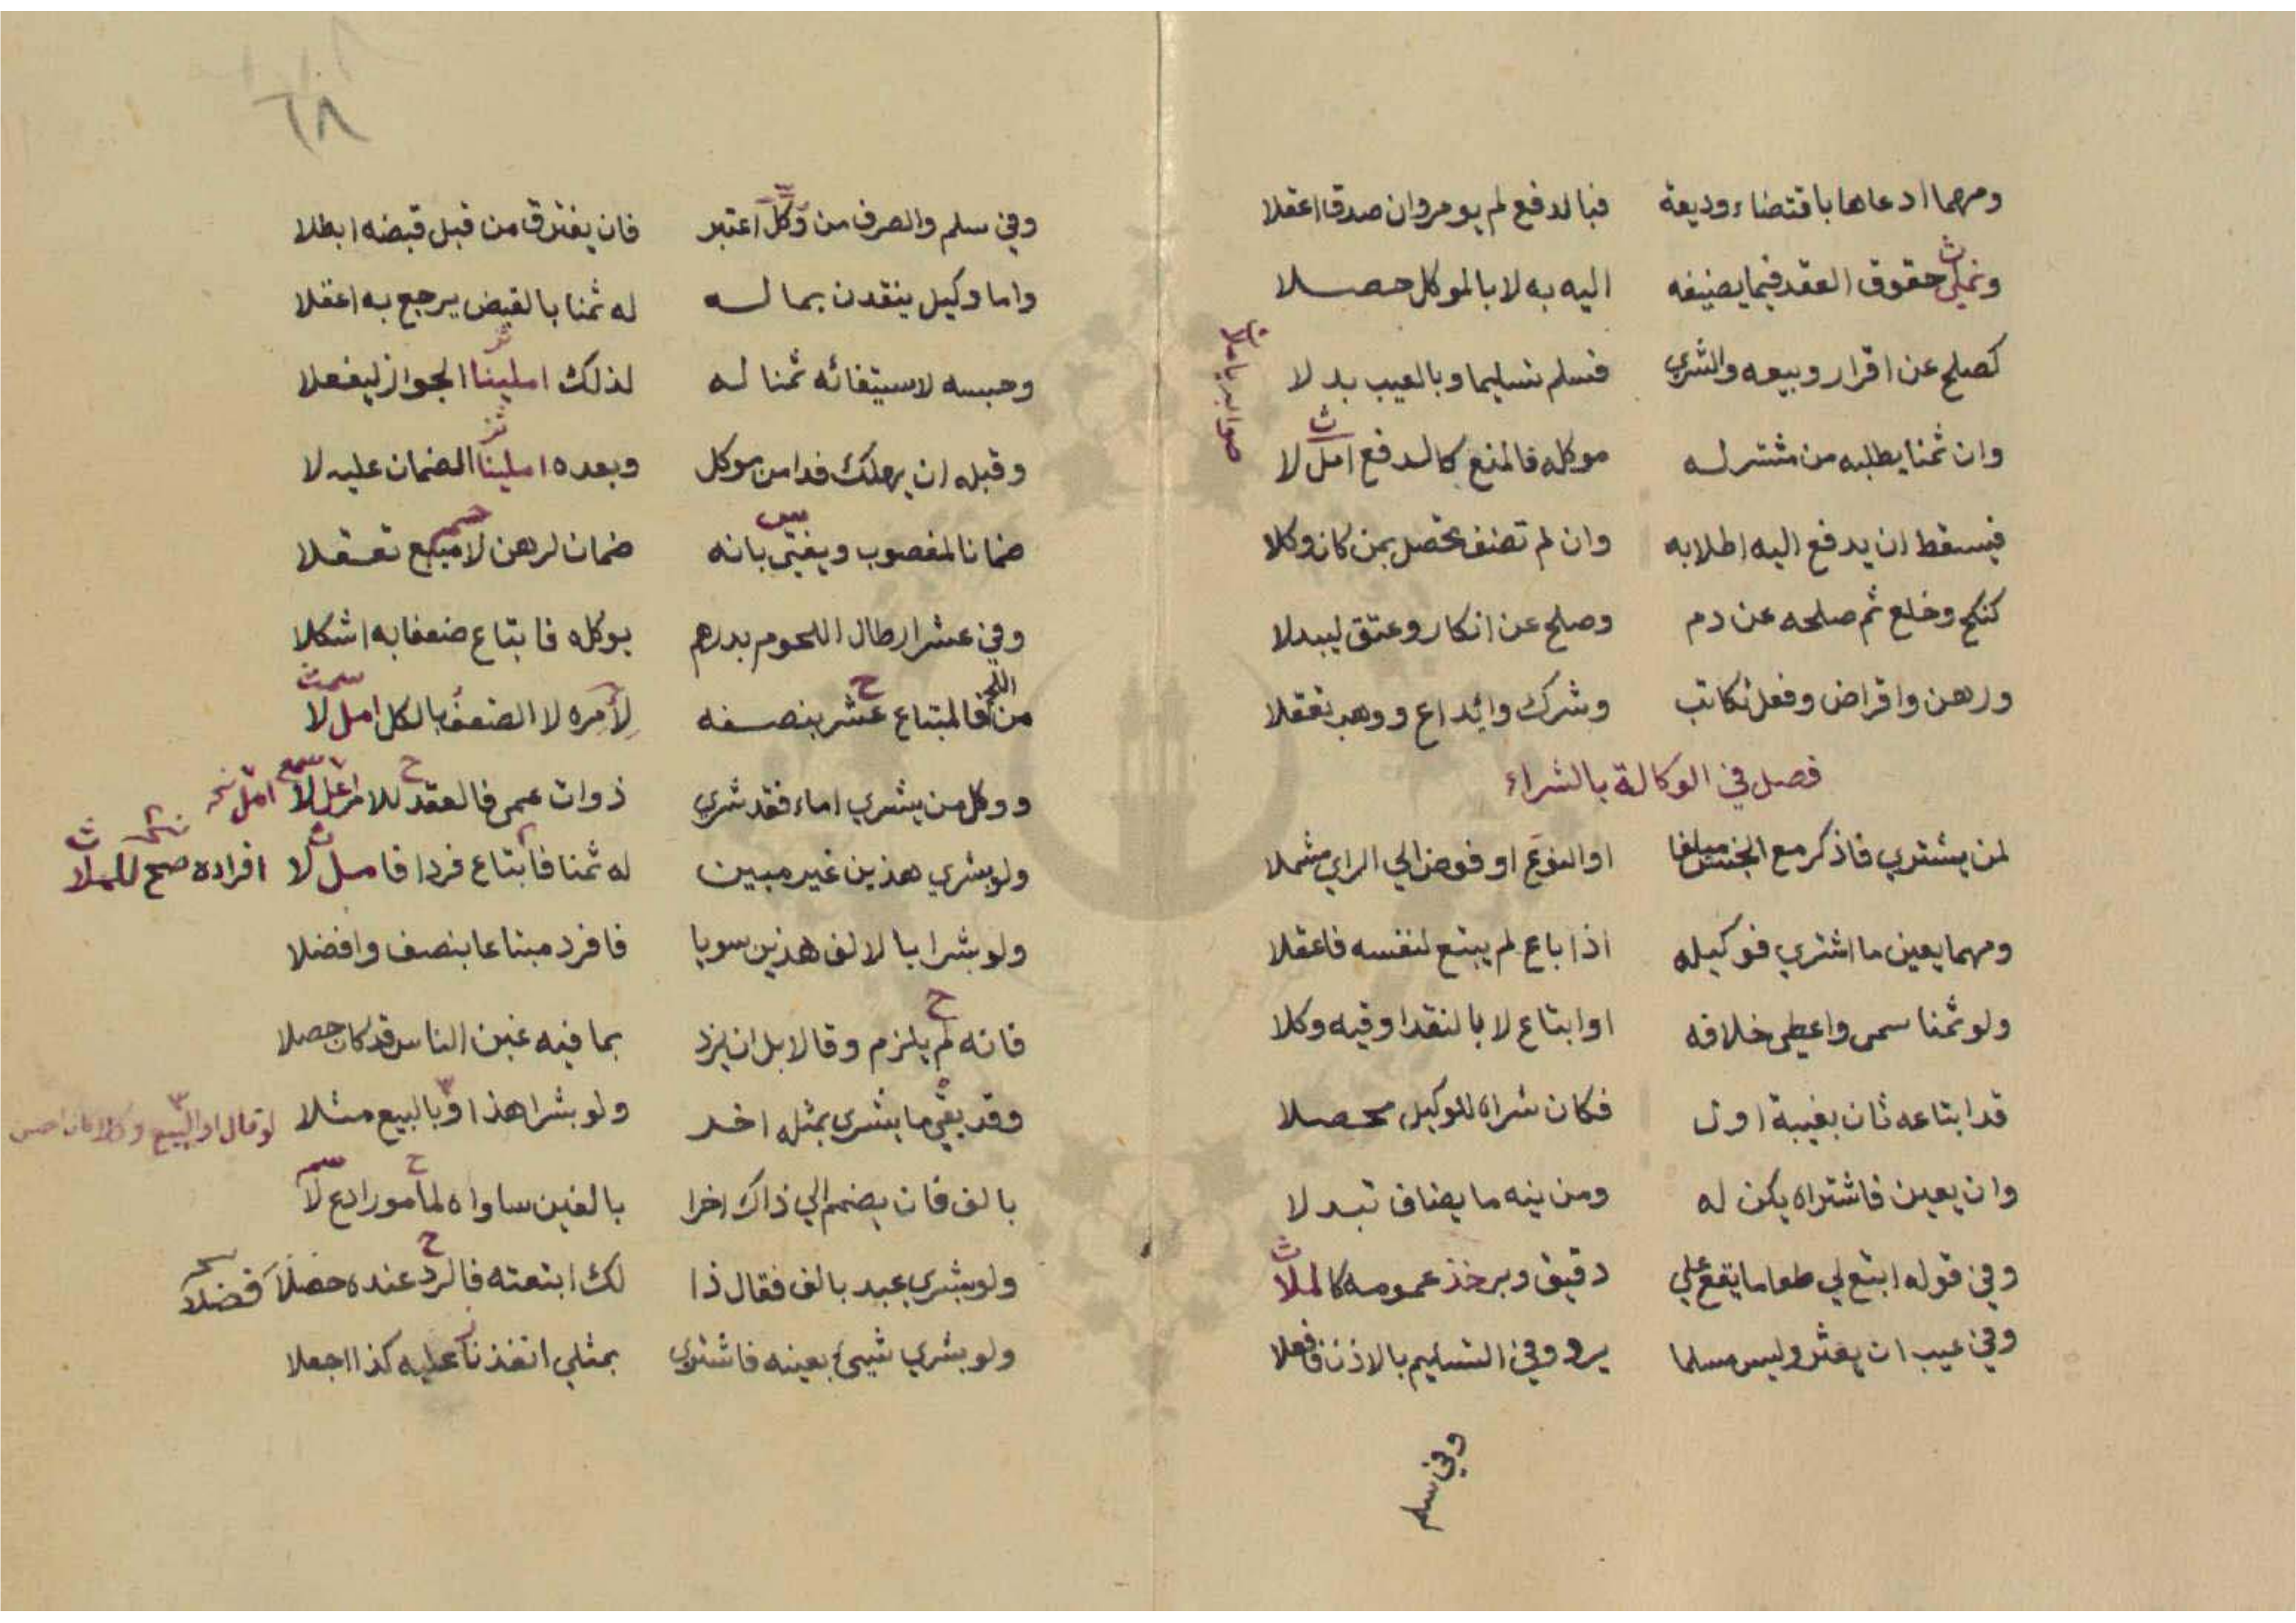 ومهما ادعاها باقتضاء وديعة فبالدفع لم يومر وان صدقا اعقلا
حقوق العقد فيما يضيفه اليه به لا بالموكل حصلا
كصلح عن اقرار وبيعه والشرى فسلم تسليما وبالعيب بدلا
وان ثمنا يطلبه من مشتر له موكله فالمنع كالدفع امل لا
فيسقط ان يدفع اليه اطلابه وان لم تضف تحصل بمن كان وكلا
كنكح وخلع ثم صلحه عن دم وصلح عن انكار وعتق ليبدلا
ورهن واقراض وفعل تكاتب وشرك وايداع ووهب تعقلا
فصل في الوكالة بالشراء
لمن يشتري فاذكر مع الجنس مبلغا او النوع او فوض الي الراي مشملا
ومهما يعين ما اشتري فوكيله اذا باع لم يبتع لنفسه فاعقلا
ولو ثمنا سمى واعطى خلافه او ابتاع لا بالنقد اوفيه وكلا
قد ابتاعه ثان بغيبة اول فكان شراه للوكيل محصلا
وان يعين فاشتراه يكن له ومن ينه ما يضاف تبدلا
وفي قوله ابتع لي طعاما يقع علي دقيق وبر خذ عمومه كالملا
وفي عيب ان يعثر وليس مسلما يرد وفي التسليم بالاذن فافعلا
وفي سلم
٦٨
وفي سلم والصرف من وكل اعتبر فان يفترق من قبل قبضه ابطلا
واما وكيل ينقدن بما له له ثمنا بالقبض يرجع به اعقلا
وحبسه لاستيفائه ثمنا له لذلك املينا الجواز ليفعلا
وقبله ان يهلك فدا من موكل وبعده املينا الضمان عليه لا
ضمانا لمغصوب ويفتى بانه ضمان لرهن لا مبيع تعقلا
وفي عشر ارطال اللحوم بدرهم يوكله فابتاع ضعفا به اشكلا
من اللحم فالمبتاع عشر بنصفه لآمره لا الضعف بالكل امل لا
ووكل من يشري اماء فقد شري ذوات عمى فالعقد للامر اعل لا امل نخـ
ولو بشري هذين غير مبين له ثمنا فابتاع فردا فامل لا افراده صح للملا
ولو بشرا بالالف هذين سويا فافرد مبتاعا بنصف وافضلا
فانه لم يلزم وقالا بل ان يزد بما فيه غبن الناس قد كان حصلا
وقد بقي ما يشرى بمثله اخر ولو بشرا هذا او بالبيع مثلا
بالف فان يضمم الي ذاك اخرا بالفين ساواه لمأمور ادع لا
ولو بشري عبد بالف فقال ذا لك ابتعته فالرد عنده حصلا فضلا
ولو بشري شيئ بعينه فاشترى بمثلي انفذنا عليه كذا اجعلا